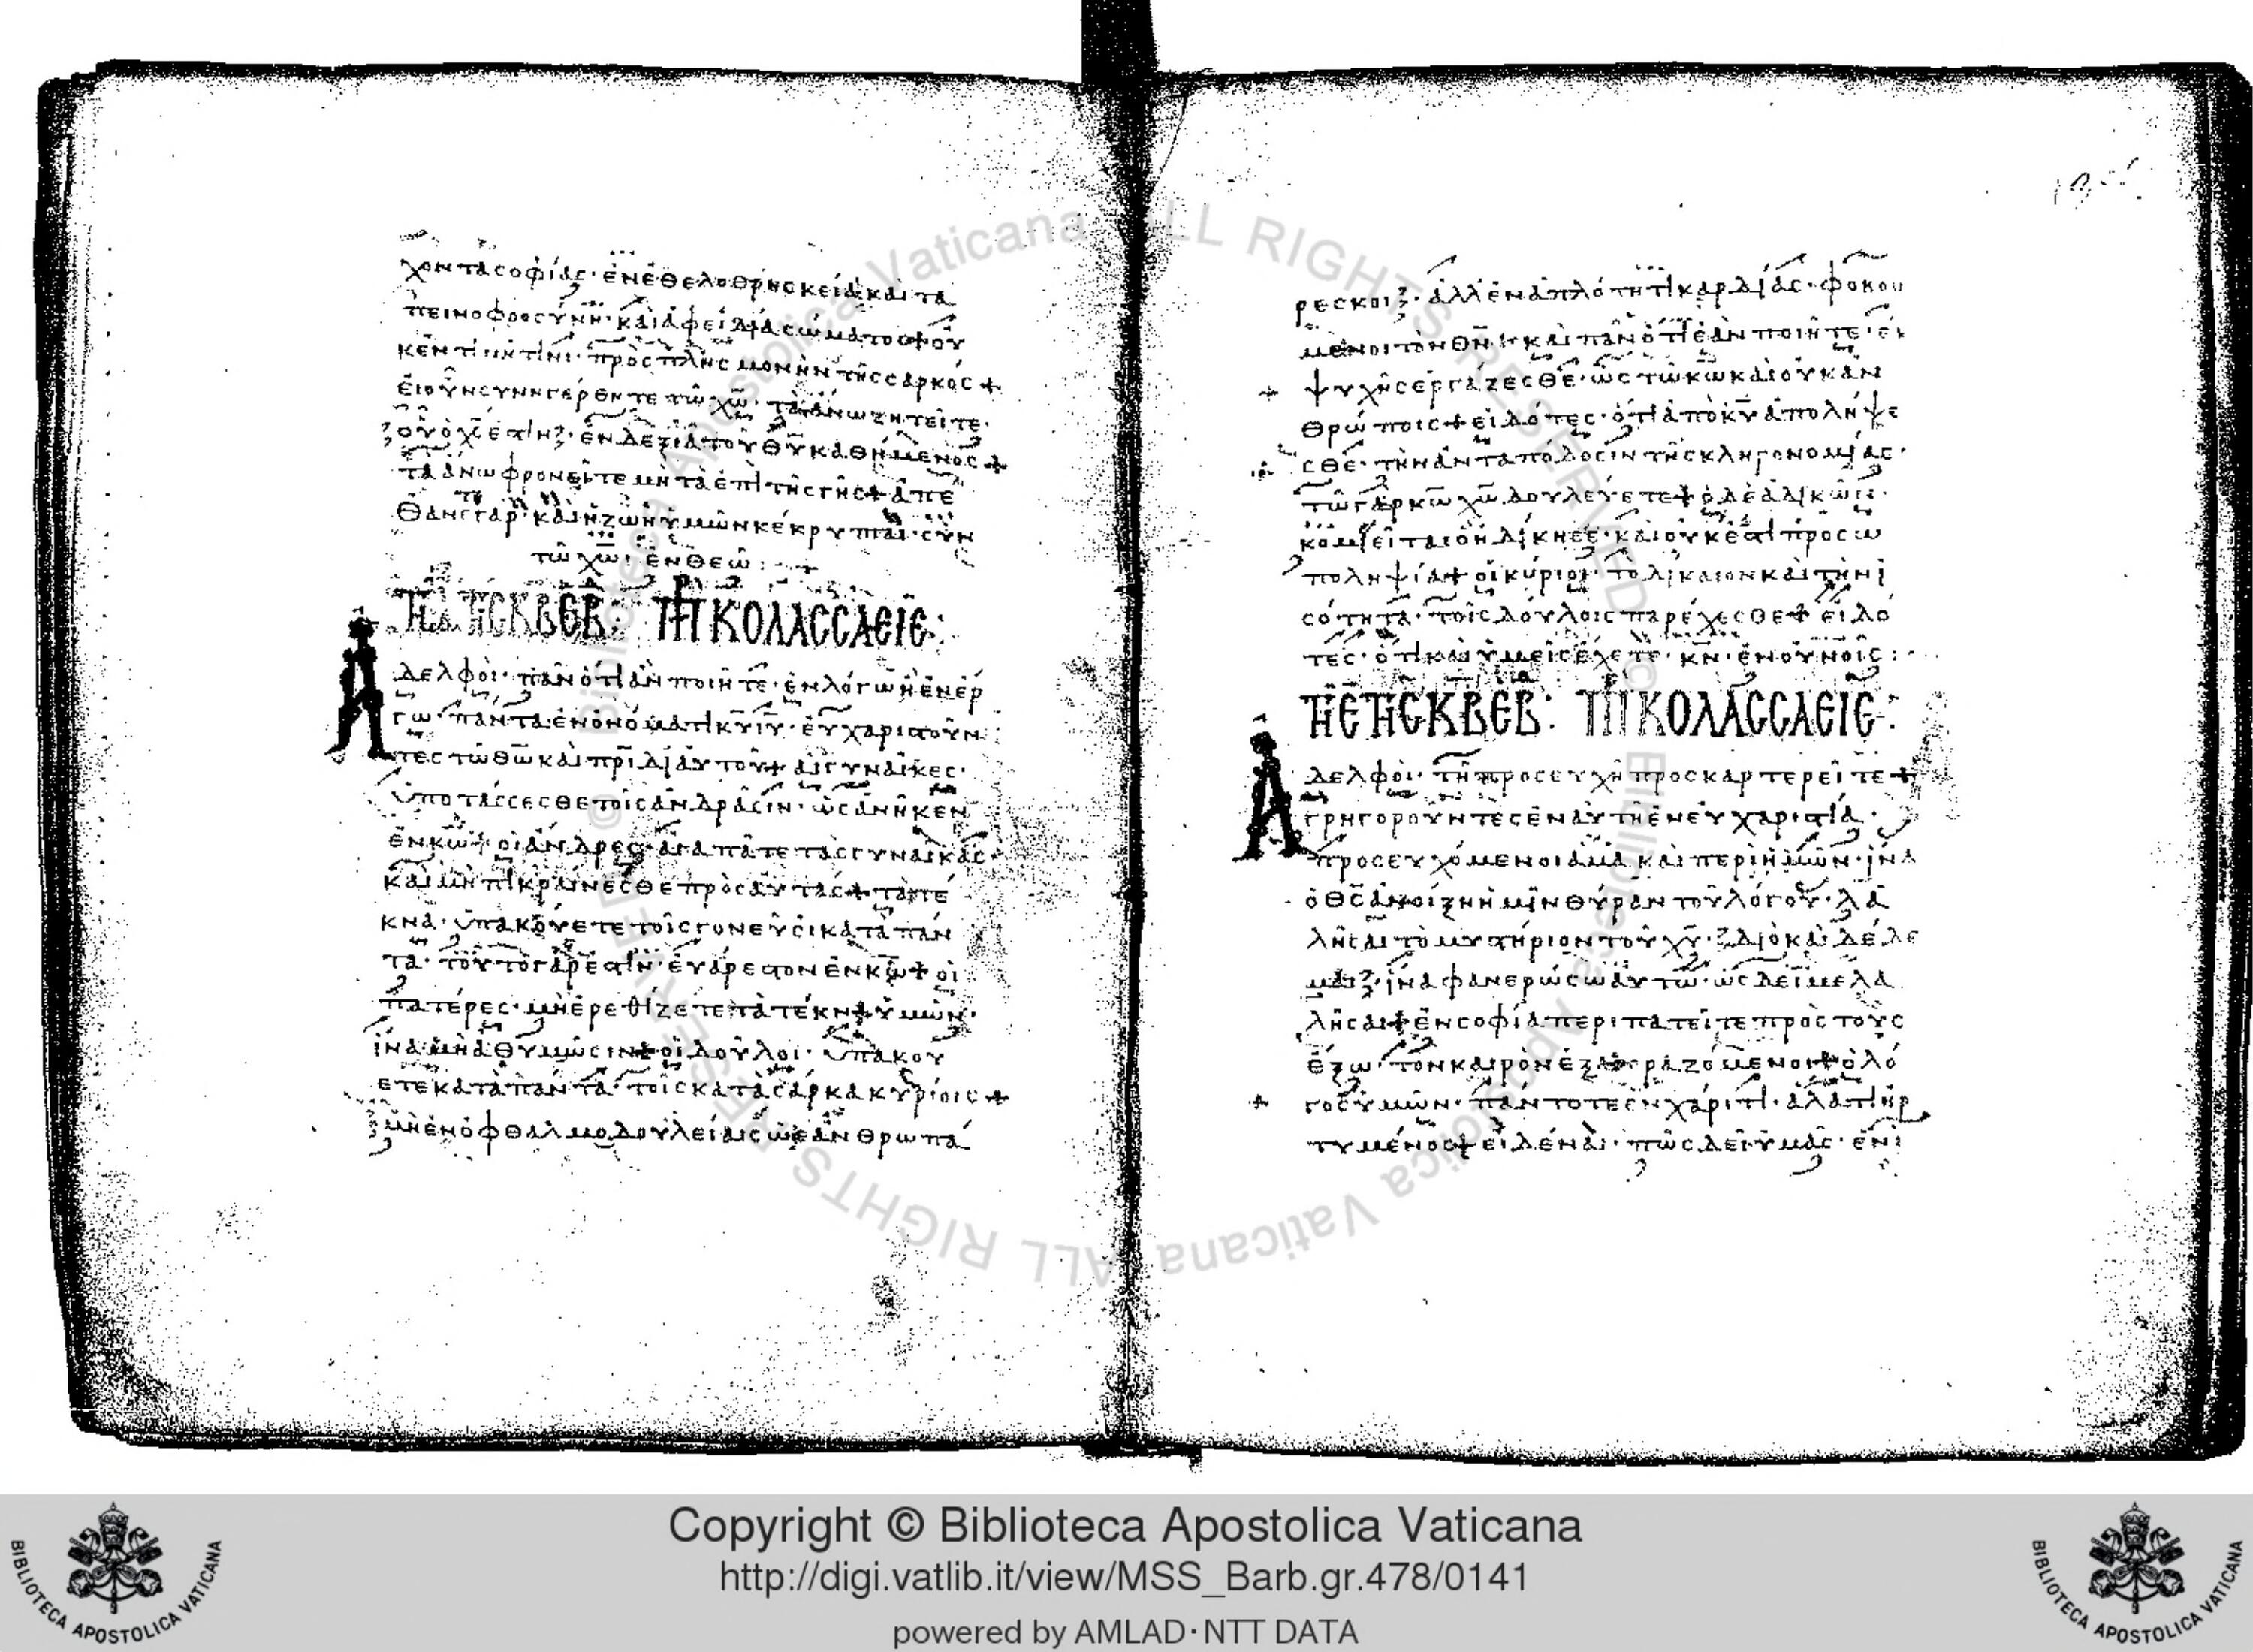 χοντα σοφίας· ἐν ἐθελοθρησκεία καὶ τα
πεινοφροσύνη· καὶ ἀφειδία σώματος οὐ
κ ἐν τιμῆ τινι· πρὸς πλησμονὴν τῆς σαρκός +
εἰ οὖν συνηγέρθητε τῶ χω· τὰ ἄνω ζητεῖτε·
οὗ ὁ χς ἐστιν· ἐν δεξιᾶ τοῦ θυ καθήμενος +
τὰ ἄνω φρονεῖτε μὴ τὰ ἐπὶ τῆς γῆς + ἀπε
θάνετε γάρ· καὶ ἡ ζωὴ ὑμῶν κέκρυπται· σὺν
τῶ χω· ἐν θεῶ:
ΚΟΛΑΣΣΑΕΙΣ:
Ἀδελφοί· πᾶν ὅτι ἂν ποιῆτε· ἐν λόγω ἢ ἐν ἔρ
γω· πάντα ἐν ὀνόματι κυ ιυ· εὐχαριστοῦν
τες τῶ θω καὶ πρι δι' αὐτοῦ + αἱ γυναῖκες·
ὑποτάσσεσθε τοῖς ἀνδράσιν· ὡς ἀνῆκεν
ἐν κω + οἱ ἄνδρες· ἀγαπᾶτε τὰς γυναῖκας·
καὶ μὴ πικραίνεσθε πρὸς αὐτάς + τὰ τέ
κνα· ὑπακούετε τοῖς γονεῦσι κατὰ πάν
τα· τοῦτο γάρ ἐστιν· εὐάρεστον ἐν κω + οἱ
πατέρες· μὴ ἐρεθίζετε τὰ τέκνα ὑμῶν·
ἵνα μὴ ἀθυμῶσιν + οἱ δοῦλοι· ὑπακού
ετε κατὰ πάντα· τοῖς κατὰ σάρκα κυρίοις +
μὴ ἐν ὀφθαλμοδουλείαις ὡς ἀνθρωπά
ρεσκοι· ἀλλ' ἐν ἁπλότητι καρδίας· φοβού
μενοι τὸν θν + καὶ πᾶν ὅτι ἐὰν ποιῆτε· ἐκ
ψυχῆς ἐργάζεσθε· ὡς τῶ κω καὶ οὐκ ἀν
θρώποις + εἰδότες· ὅτι ἀπὸ κυ ἀπολήψε
σθε· τὴν ἀνταπόδοσιν τῆς κληρονομίας·
τῶ γὰρ κω χω δουλεύετε + ὁ δὲ ἀδικῶν·
κομιεῖται ὃ ἠδίκησε· καὶ οὐκ ἔστι προσω
ποληψία + οἱ κύριοι· τὸ δίκαιον καὶ τὴν ἰ
σότητα· τοῖς δούλοις παρέχεσθε + εἰδό
τες· ὅτι καὶ ὑμεῖς ἔχετε· κν· ἐν οὐνοῖς:
ΚΟΛΑΣΣΑΕΙΣ:
Ἀδελφοί· τῆ προσευχῆ προσκαρτερεῖτε +
γρηγοροῦντες ἐν αὐτῆ ἐν εὐχαριστία·
προσευχόμενοι ἅμα καὶ περὶ ἡμῶν· ἵνα
ὁ θς ἀνοίξη ἡμῖν θύραν τοῦ λόγου· λα
λῆσαι τὸ μυστήριον τοῦ χυ· δι' ὃ καὶ δέδε
μαι· ἵνα φανερώσω αὐτῶ· ὡς δεῖ με λα
λῆσαι + ἐν σοφία περιπατεῖτε πρὸς τοὺς
ἔξω· τὸν καιρὸν ἐξαγοραζόμενοι + ὁ λό
γος ὑμῶν· πάντοτε ἐν χάριτι· ἅλατι ἠρ
τυμένος + εἰδέναι· πῶς δεῖ ὑμᾶς· ἑνὶ
Copyright © Biblioteca Apostolica Vaticana
http://digi.vatlib.it/view/MSS_Barb.gr.478/0141
powered by AMLAD·NTT DATA
BIBLIOTECA APOSTOLICA VATICANA
BIBLIOTECA APOSTOLICA VATICANA